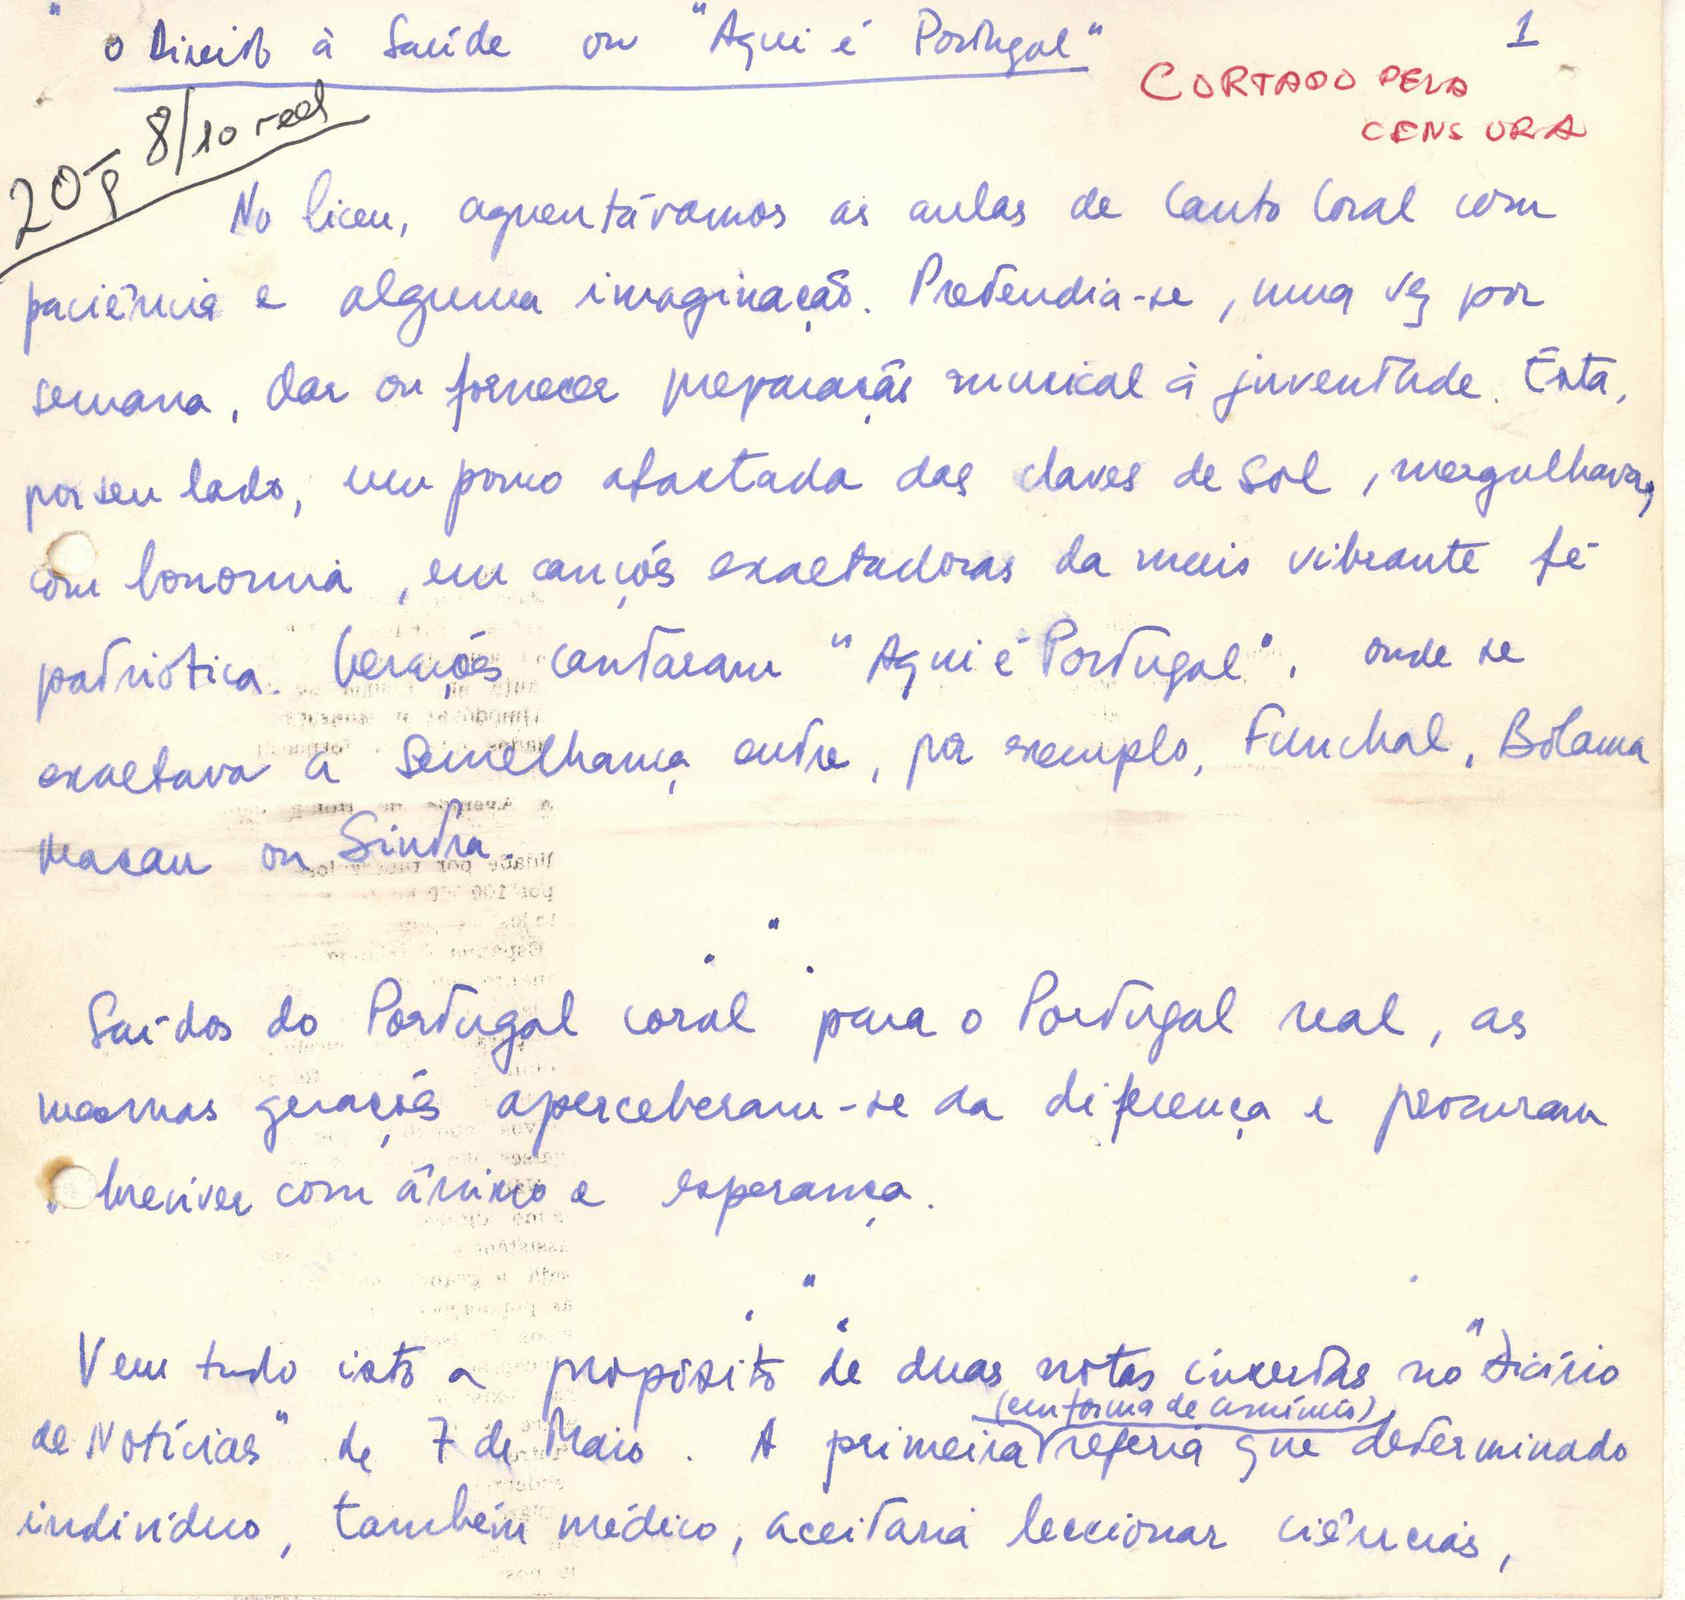 "O Direito à Saúde ou "Aqui é Portugal"
1
CORTADO PELA
CENSURA
8/10 reg
No liceu, aguentávamos as aulas de Canto Coral com
paciência e alguma imaginação. Pretendia-se, uma vez por
semana, dar ou fornecer preparação musical à juventude. Esta,
por seu lado, um pouco afastada das claves de Sol, mergulhava,
com bonomia, em canções exaltadoras da mais vibrante fé
patriótica. Gerações cantaram "Aqui é Portugal", onde se
exaltava a semelhança entre, por exemplo, Funchal, Bolama
Macau ou Sintra.
Saídos do Portugal coral para o Portugal real, as
mesmas gerações aperceberam-se da diferença e procuram
sobreviver com ânimo e esperança.
Vem tudo isto a propósito de duas notas insertas no "Diário
de Notícias" de 7 de Maio. A primeira (em forma de anúncio) referia que determinado
indivíduo, também médico, aceitaria leccionar ciências,